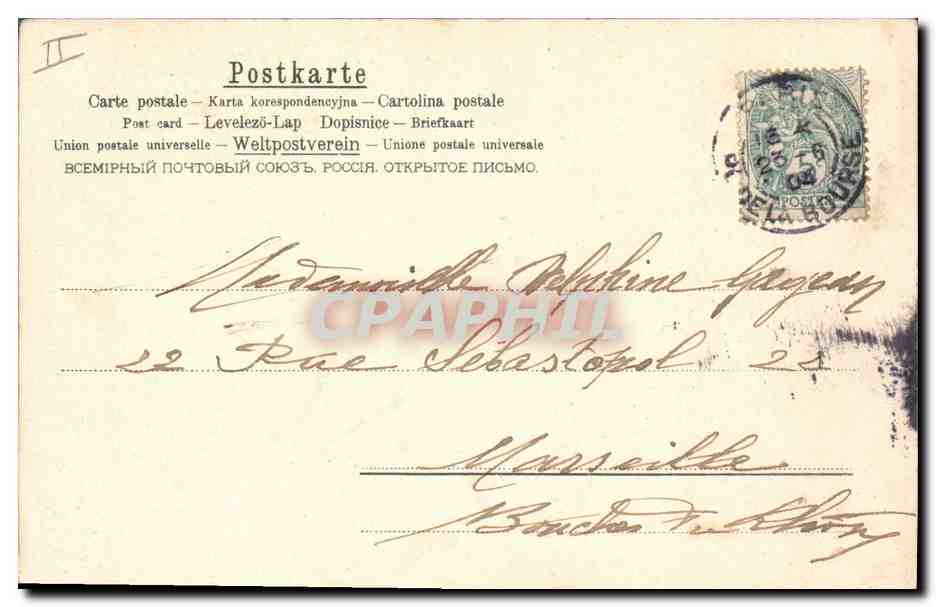 II
Postkarte
Carte postale — Karta korespondencyjna — Cartolina postale
Post card — Levelező-Lap Dopisnice — Briefkaart
Union postale universelle — Weltpostverein — Unione postale universale
ВСЕМІРНЫЙ ПОЧТОВЫЙ СОЮЗЪ. РОССІЯ. ОТКРЫТОЕ ПИСЬМО.
5
POSTES
DE LA BOURSE
Mademoiselle Delphine
CPAPHIL
22 Rue Sébastopol 22
Marseille
Bouches du Rhône